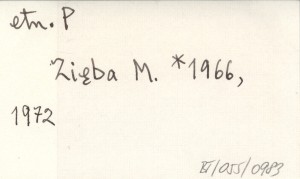 etn. P
Zięba M. *1966,
1972
BJ/055/0983